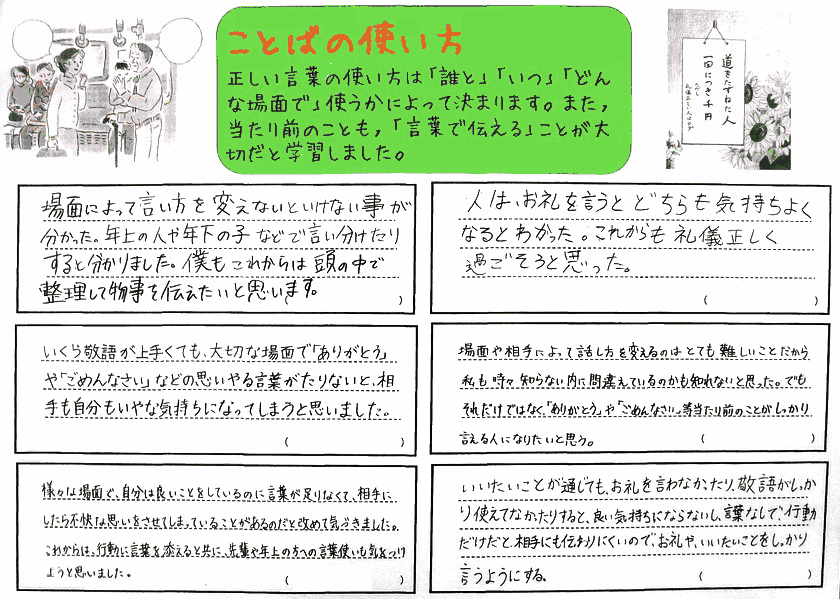 ことばの使い方
正しい言葉の使い方は「誰と」「いつ」「どん
な場面で」使うかによって決まります。また，
当たり前のことも，「言葉で伝える」ことが大
切だと学習しました。
道をたずねた人
一回につき千円
場面によって言い方を変えないといけない事が
分かった。年上の人や年下の子などで言い分けたり
すると分かりました。僕もこれからは頭の中で
整理して物事を伝えたいと思います。
)
人は、お礼を言うとどちらも気持ちよく
なるとわかった。これからも礼儀正しく
過ごそうと思った。
( )
いくら敬語が上手くても、大切な場面で「ありがとう」
や「ごめんなさい」などの思いやる言葉がたりないと、相
手も自分もいやな気持ちになってしまうと思いました。
( )
場面や相手によって話し方を変えるのはとても難しいことだから
私も時々知らない内に間違えているのかも知れないと思った。でも
それだけではなく、「ありがとう」や「ごめんなさい」等当たり前のことがしっかり
言える人になりたいと思う。 ( )
様々な場面で、自分は良いことをしているのに言葉が足りなくて、相手に
したら不快な思いをさせてしまっていることがあるのだと改めて気づきました。
これからは、行動に言葉を添えると共に、先輩や年上の方への言葉使いも気をつけ
ようと思いました。 ( )
いいたいことが通じても、お礼を言わなかったり、敬語がしっか
り使えてなかったりすると、良い気持ちにならないし、言葉なしで、行動
だけだと、相手にも伝わりにくいので、お礼や、いいたいことをしっかり
言うようにする。 ( )